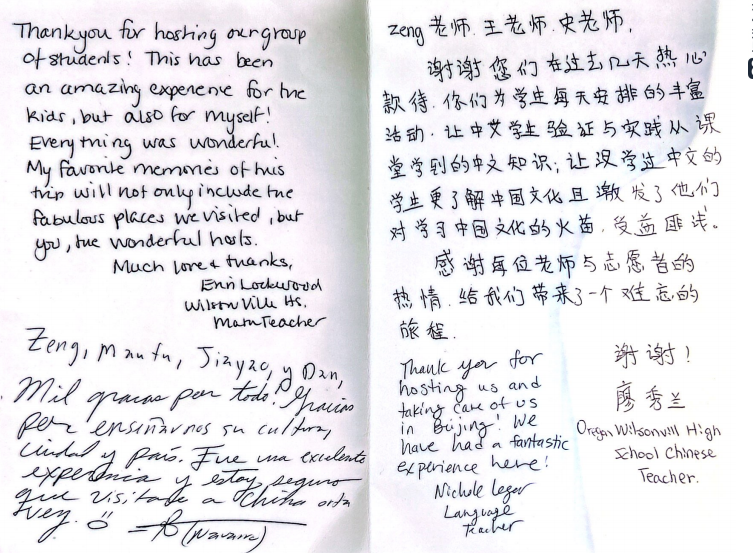 Thankyou for hosting our group
of students! This has been
an amazing experience for the
kids, but also for myself!
Everything was wonderful.
My favorite memories of this
trip will not only include the
fabulous places we visited, but
you, the wonderful hosts.
Much love & thanks,
Erin Lockwood
Wilsonville HS.
Math Teacher
Zeng, Manfu, Jiayao, y Dan,
Mil gracias por todo! Gracias
por enseñarnos su cultura,
ciudad y país. Fue una excelente
experiencia y estoy seguro
que visitaré a China otra
vez.
(Navarro)
zeng老师.王老师.史老师,
谢谢您们在过去几天热心
款待.你们为学生每天安排的丰富
活动.让中文学生验证与实践从课
堂学到的中文知识;让没学过中文的
学生更了解中国文化且激发了他们
对学习中国文化的火苗.受益匪浅。
感谢每位老师与志愿者的
热情.给我们带来了一个难忘的
旅程.
谢谢!
廖秀兰
Oregon Wilsonvill High
School Chinese
Teacher.
Thank you for
hosting us and
taking care of us
in Beijing! We
have had a fantastic
experience here!
Nichole Leger
Language
Teacher